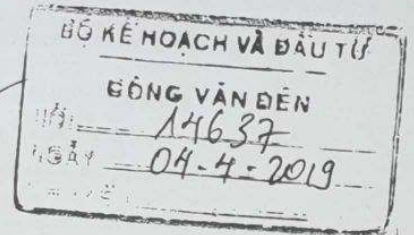 BỘ KẾ HOẠCH VÀ ĐẦU TƯ
CÔNG VĂN ĐẾN
14637
04-4-2019